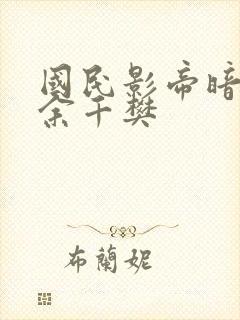 國民影帝暗
余千樊
布蘭妮